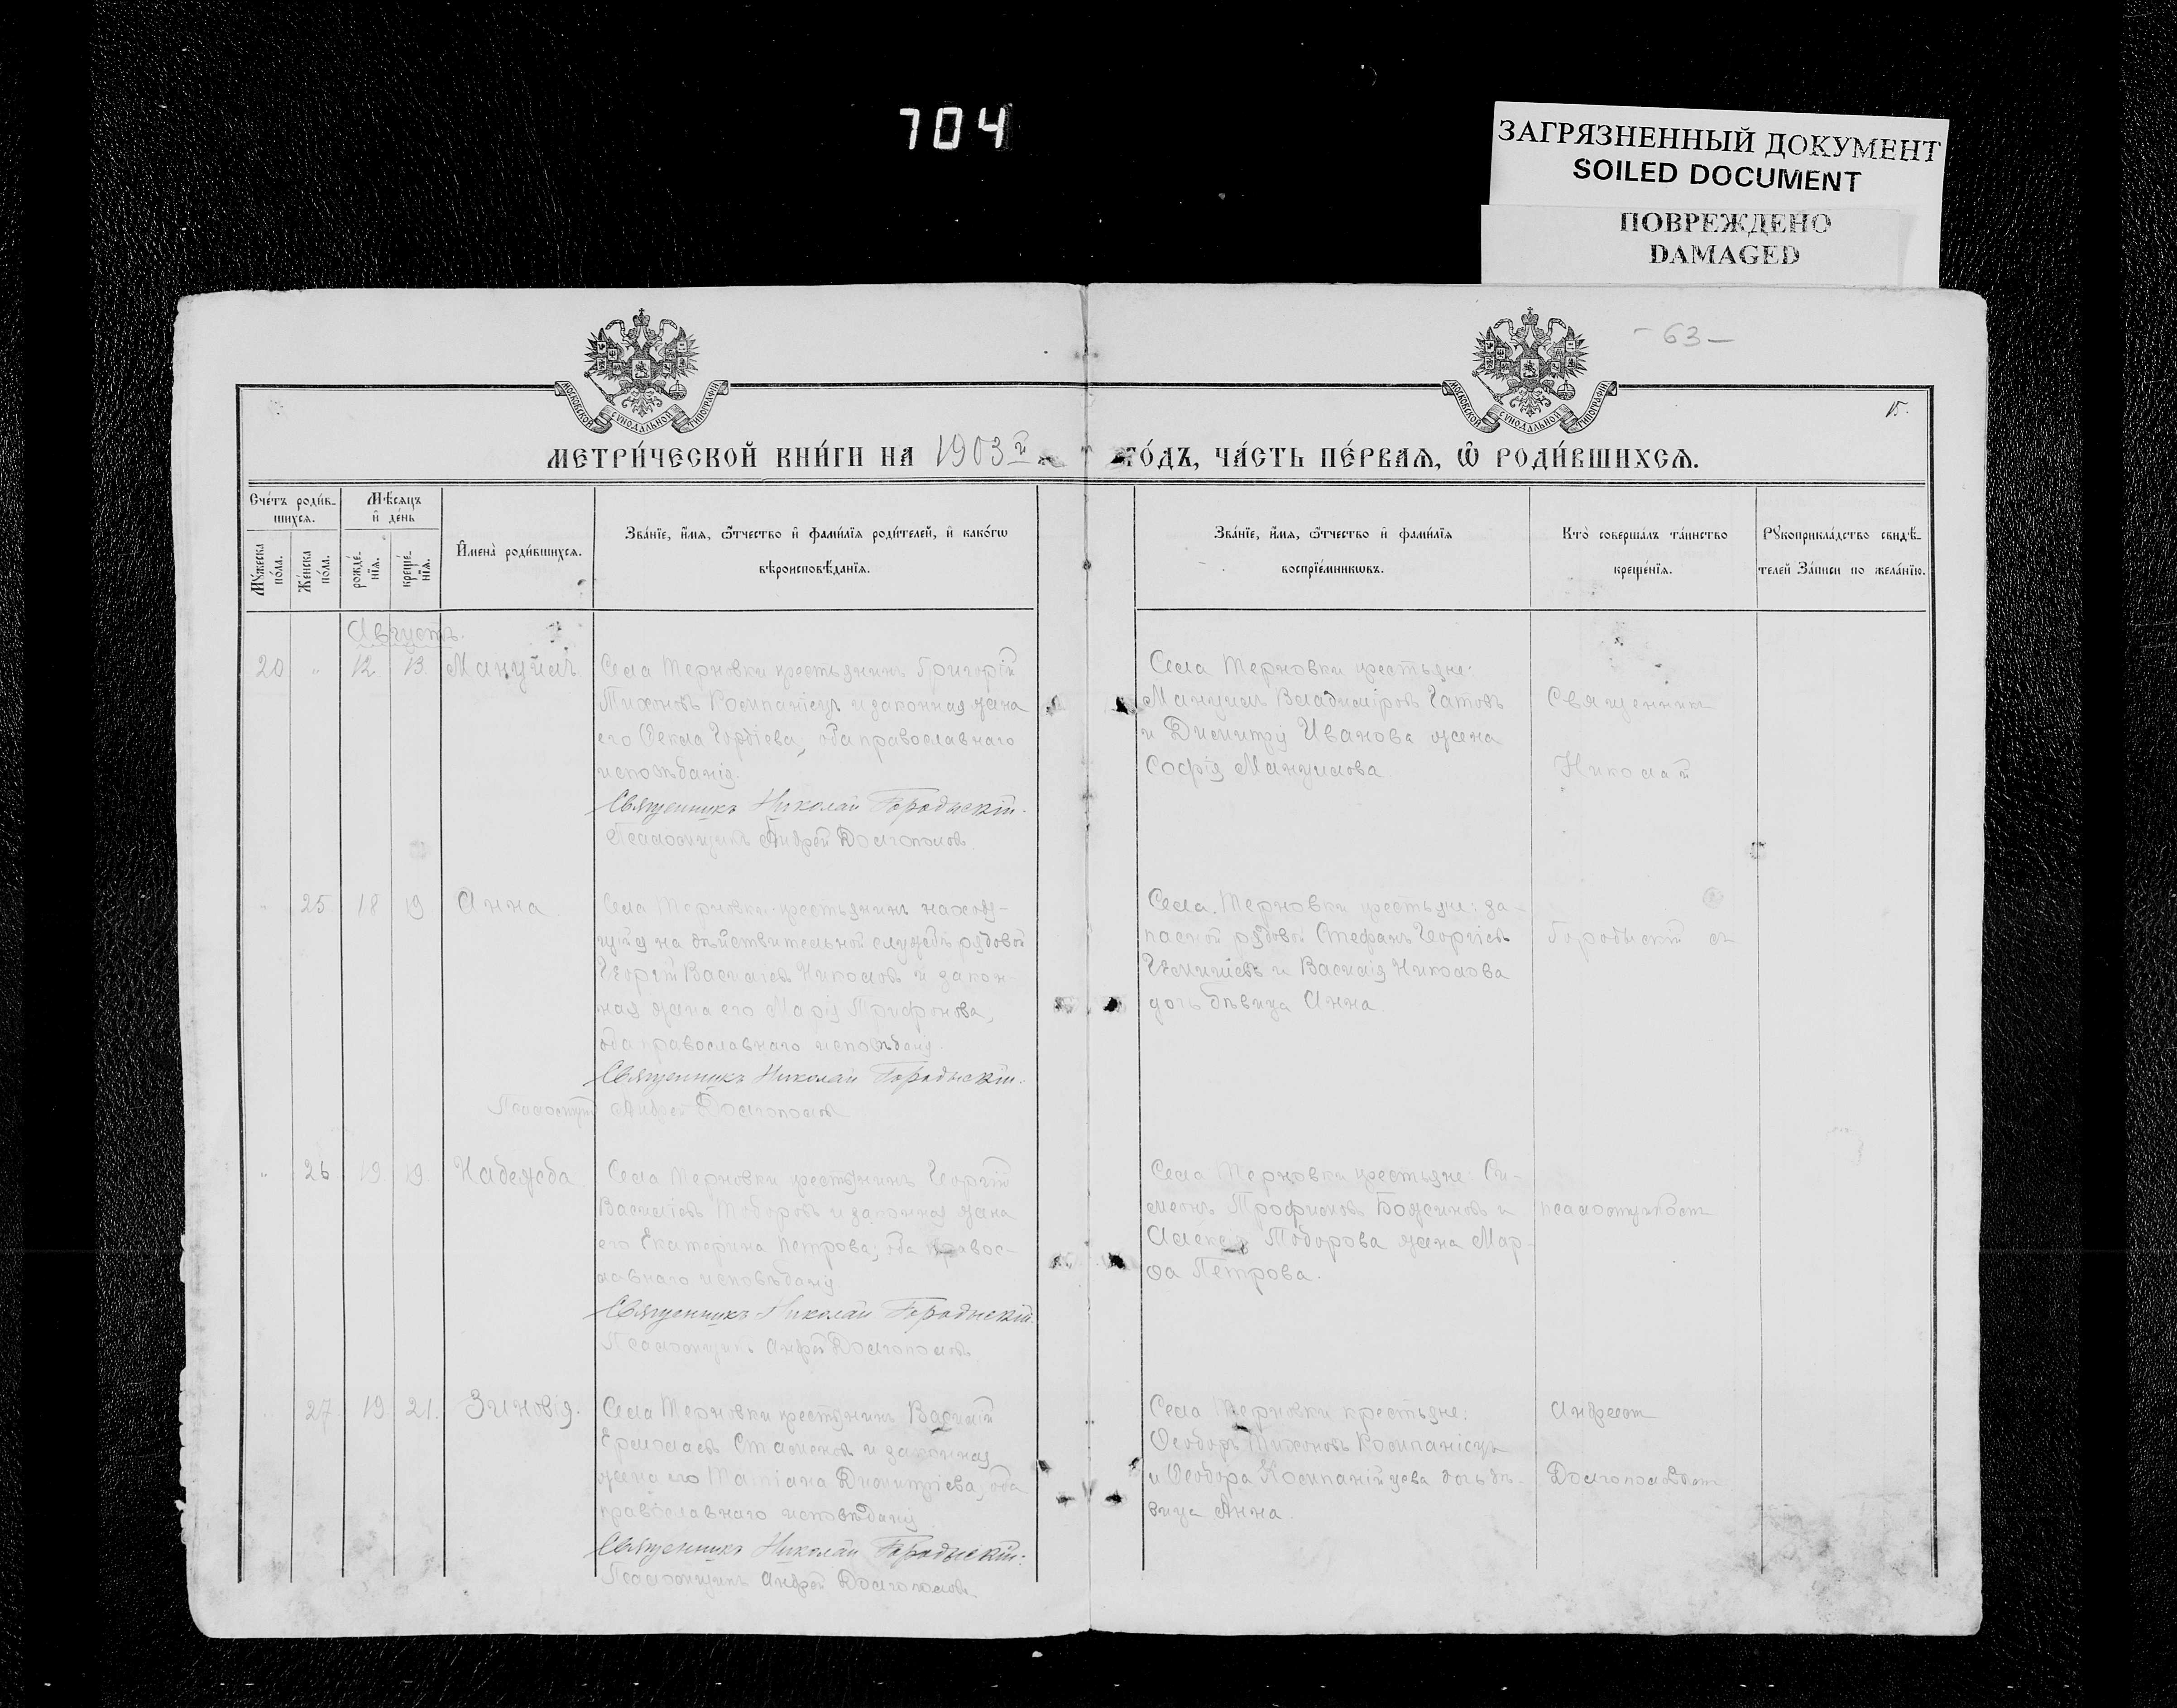 704
ЗАГРЯЗНЕННЫЙ ДОКУМЕНТ
SOILED DOCUMENT
ПОВРЕЖДЕНО
DAMAGED
– 63 –
МОСКОВСКОЙ СѴНОДАЛЬНОЙ ТИПОГРАФІИ
МОСКОВСКОЙ СѴНОДАЛЬНОЙ ТИПОГРАФІИ
МЕТРИ́ЧЕСКОЙ КНИ́ГИ НА 1903й
ГО́ДЪ, ЧА́СТЬ ПЕ́РВАѦ, Ѡ҆ РОДИ́ВШИХСѦ.
Сче́тъ роди́в-
шихсѧ.
Мѣ́сѧцъ
и҆ де́нь
Мꙋ́жеска по́ла.
Же́нска по́ла.
рожде́-нїѧ.
креще́-нїѧ.
И҆мена̀ роди́вшихсѧ.
Зва́нїе, и҆́мѧ, ѻ҆́тчество и҆ фами́лїѧ роди́телей, и҆ како́гѡ
вѣроисповѣ́данїѧ.
Зва́нїе, и҆́мѧ, ѻ҆́тчество и҆ фами́лїѧ
воспрїе́мникѡвъ.
Кто̀ соверша́лъ та́инство
креще́нїѧ.
Рꙋкоприкла́дство свидѣ́-
телей За́писи по жела́нїю.
Августъ.
20 " 12. 13. Мануилъ
Села Терновки крестьянинъ Григорій
Тихоновъ Компаніецъ и законная жена
его Ѳекла Гордіева, оба православнаго
исповѣданія.
Священникъ Николай Городыскій.
Псаломщикъ Андрей Долгополовъ.
Села Терновки крестьяне:
Мануилъ Владиміровъ
и Димитрія Иванова жена
Софія Мануилова
Священникъ
Николай
" 25 18 19 Анна
Села Терновки крестьянинъ находя-
щійся на дѣйствительной службѣ рядовой
Георгій Васильевъ Николовъ и закон-
ная жена его Марія Трифонова,
оба православнаго исповѣданія.
Священникъ Николай Городыскій.
Псаломщикъ Андрей Долгополовъ
Села Терновки крестьяне: за-
пасной рядовой Стефанъ Георгіевъ
и Василія Николова
дочь дѣвица Анна
Городыскій съ
" 26 19. 19. Надежда
Села Терновки крестьянинъ Георгій
Васильевъ Тодоровъ и законная жена
его Екатерина Петрова; оба правос-
лавнаго исповѣданія.
Священникъ Николай Городыскій.
Псаломщикъ Андрей Долгополовъ
Села Терновки крестьяне: Си-
меонъ Трофимовъ Божиновъ и
Алексія Тодорова жена Мар-
ѳа Петрова.
псаломщикомъ
27 19 21. Зиновія.
Села Терновки крестьянинъ Василій
Ермолаевъ Стаменовъ и законная
жена его Татіана Димитріева, оба
православнаго исповѣданія.
Священникъ Николай Городыскій.
Псаломщикъ Андрей Долгополовъ.
Села Терновки крестьяне:
Ѳеодоръ Тихоновъ Компаніецъ
и Ѳеодора Компанійцева дочь дѣ-
вица Анна.
Андреемъ
Долгополовымъ